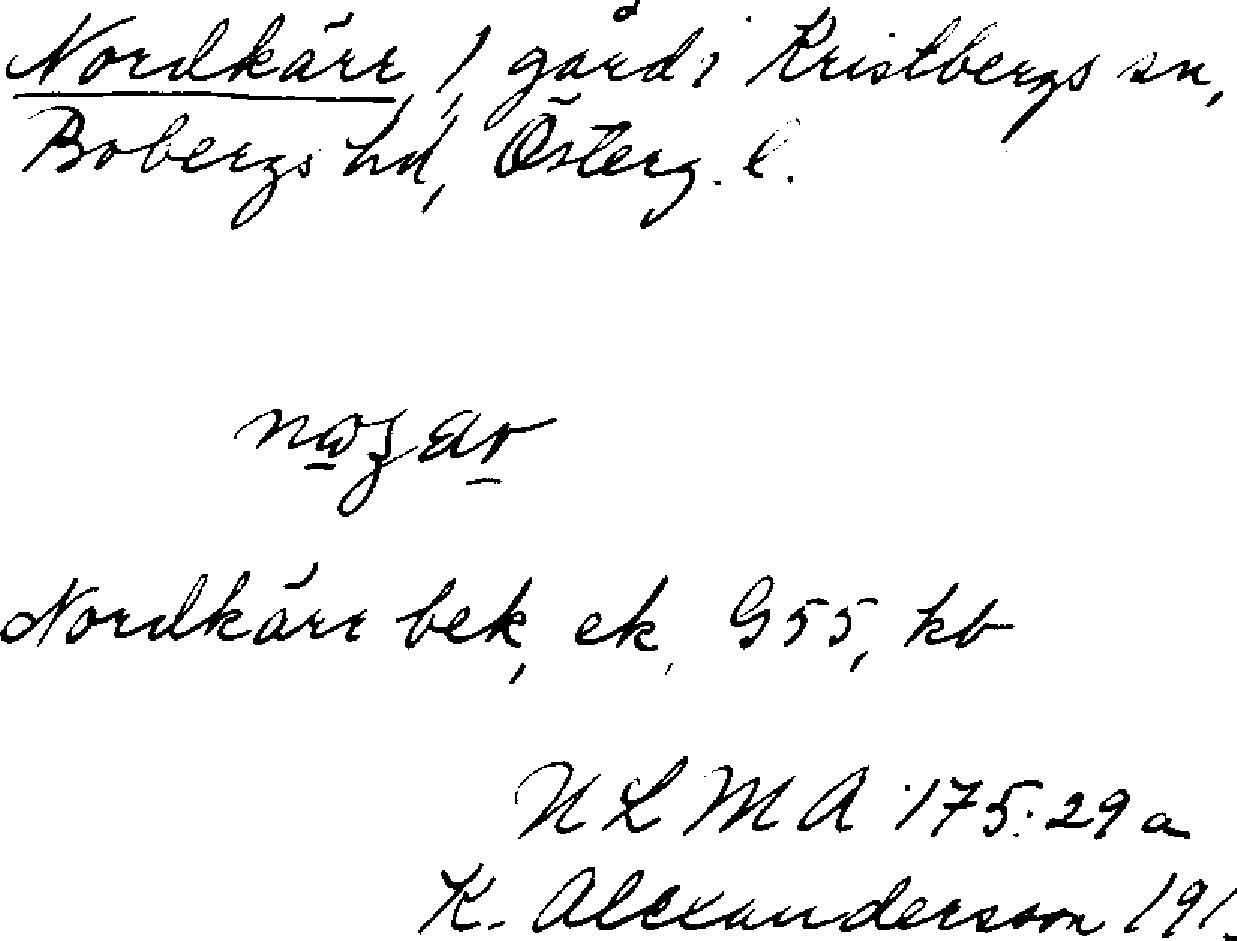 Nordkärr, 1 gård i Kristbergs sn,
Bobergs hd, Österg. l.
Nordkärr bek, ek, G55, kb
ULMA 175:29a
K. Alexanderson 191